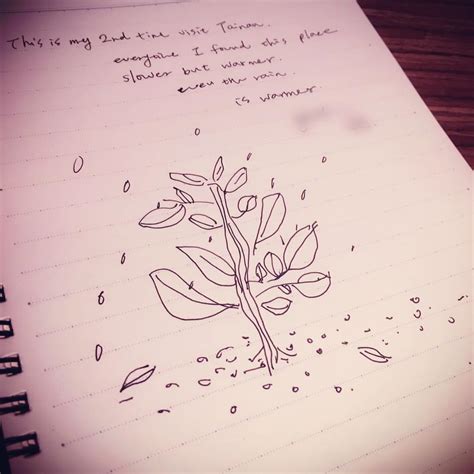 This is my 2nd time visit Tainan.
everyone I found this place
slower but warmer.
even the rain
is warmer